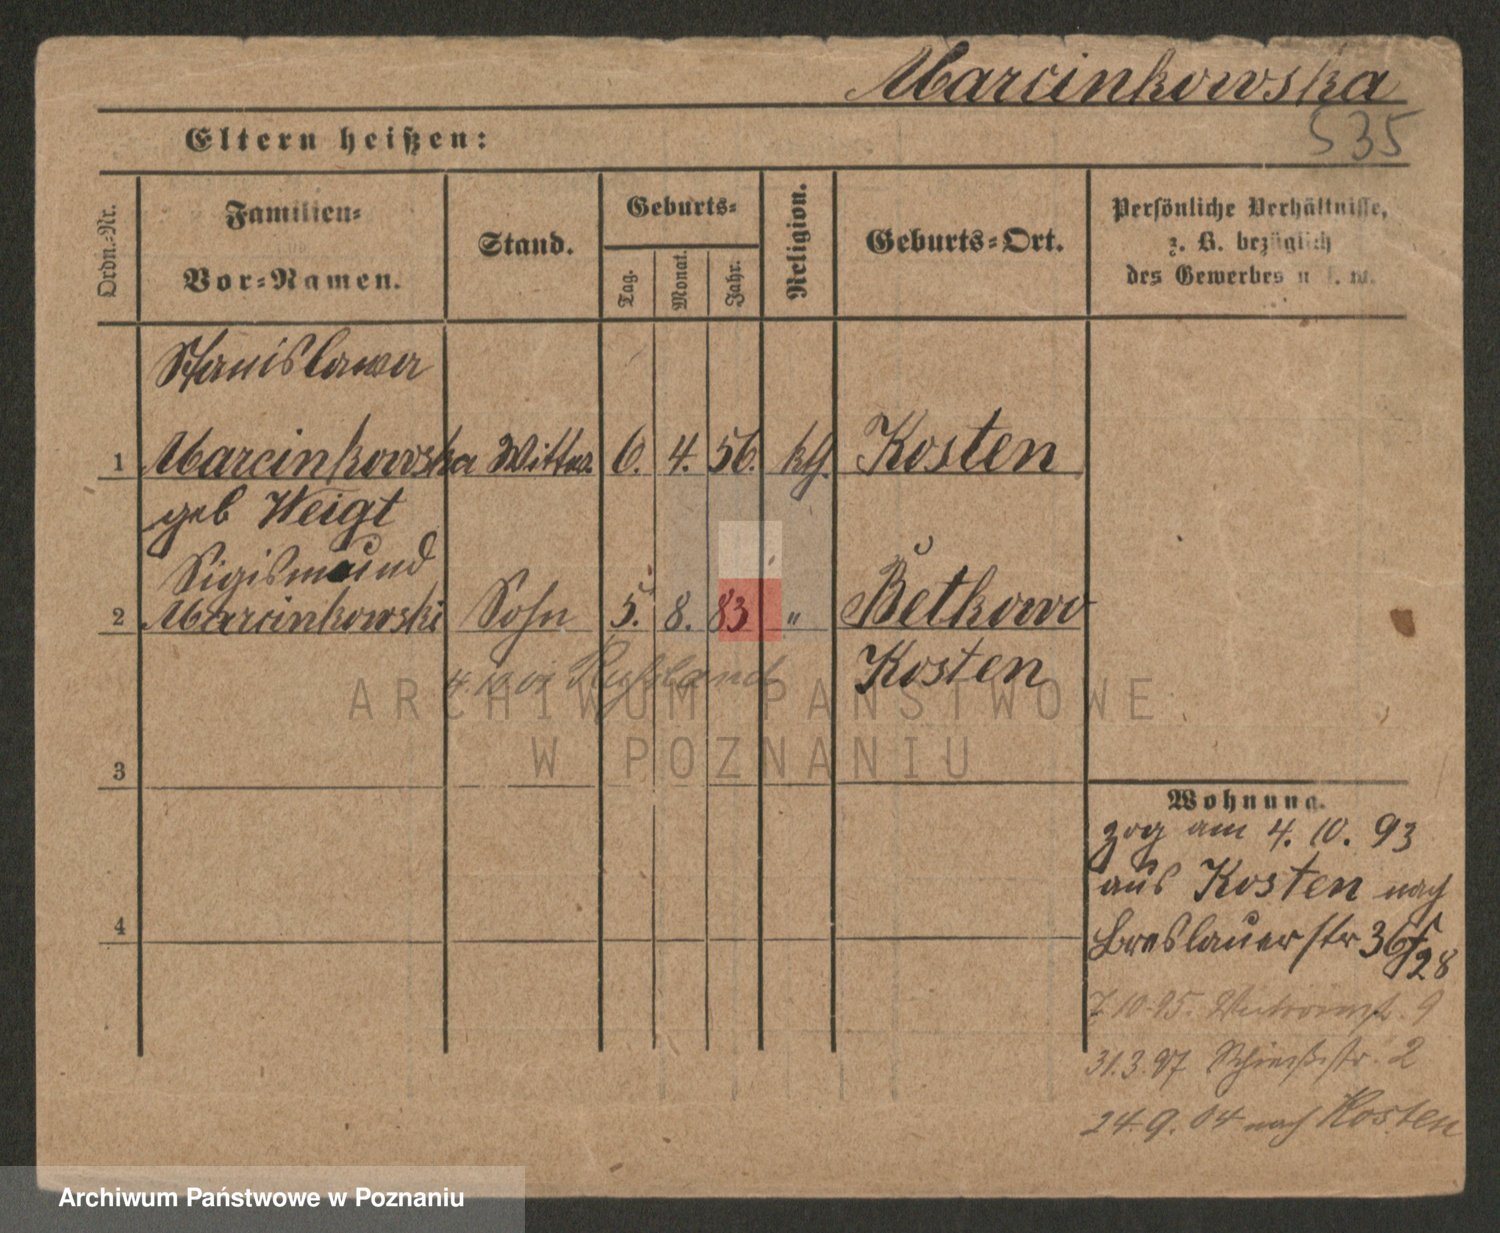 Marcinkowska
535
Eltern heißen:
Ordn.-Nr.
Familien-
und
Vor-Namen.
Stand.
Geburts-
Tag.
Monat.
Jahr.
Religion.
Geburts-Ort.
Persönliche Verhältnisse,
z. B. bezüglich
des Gewerbes u. s. w.
Stanislawa
1 Marcinkowska Wittwe 6. 4. 56. kth. Kosten
geb Weigt
Sigismund
2 Marcinkowski Sohn 5. 8. 83 " Betkowo
4.10.01 Rußland Kosten
ARCHIWUM PAŃSTWOWE
W POZNANIU
3
4
Wohnung.
zog am 4. 10. 93
aus Kosten nach
Breslauerstr 36
28
7.10.95. 9
31.3.97 Schießstr. 2
24.9.04 nach Kosten
Archiwum Państwowe w Poznaniu